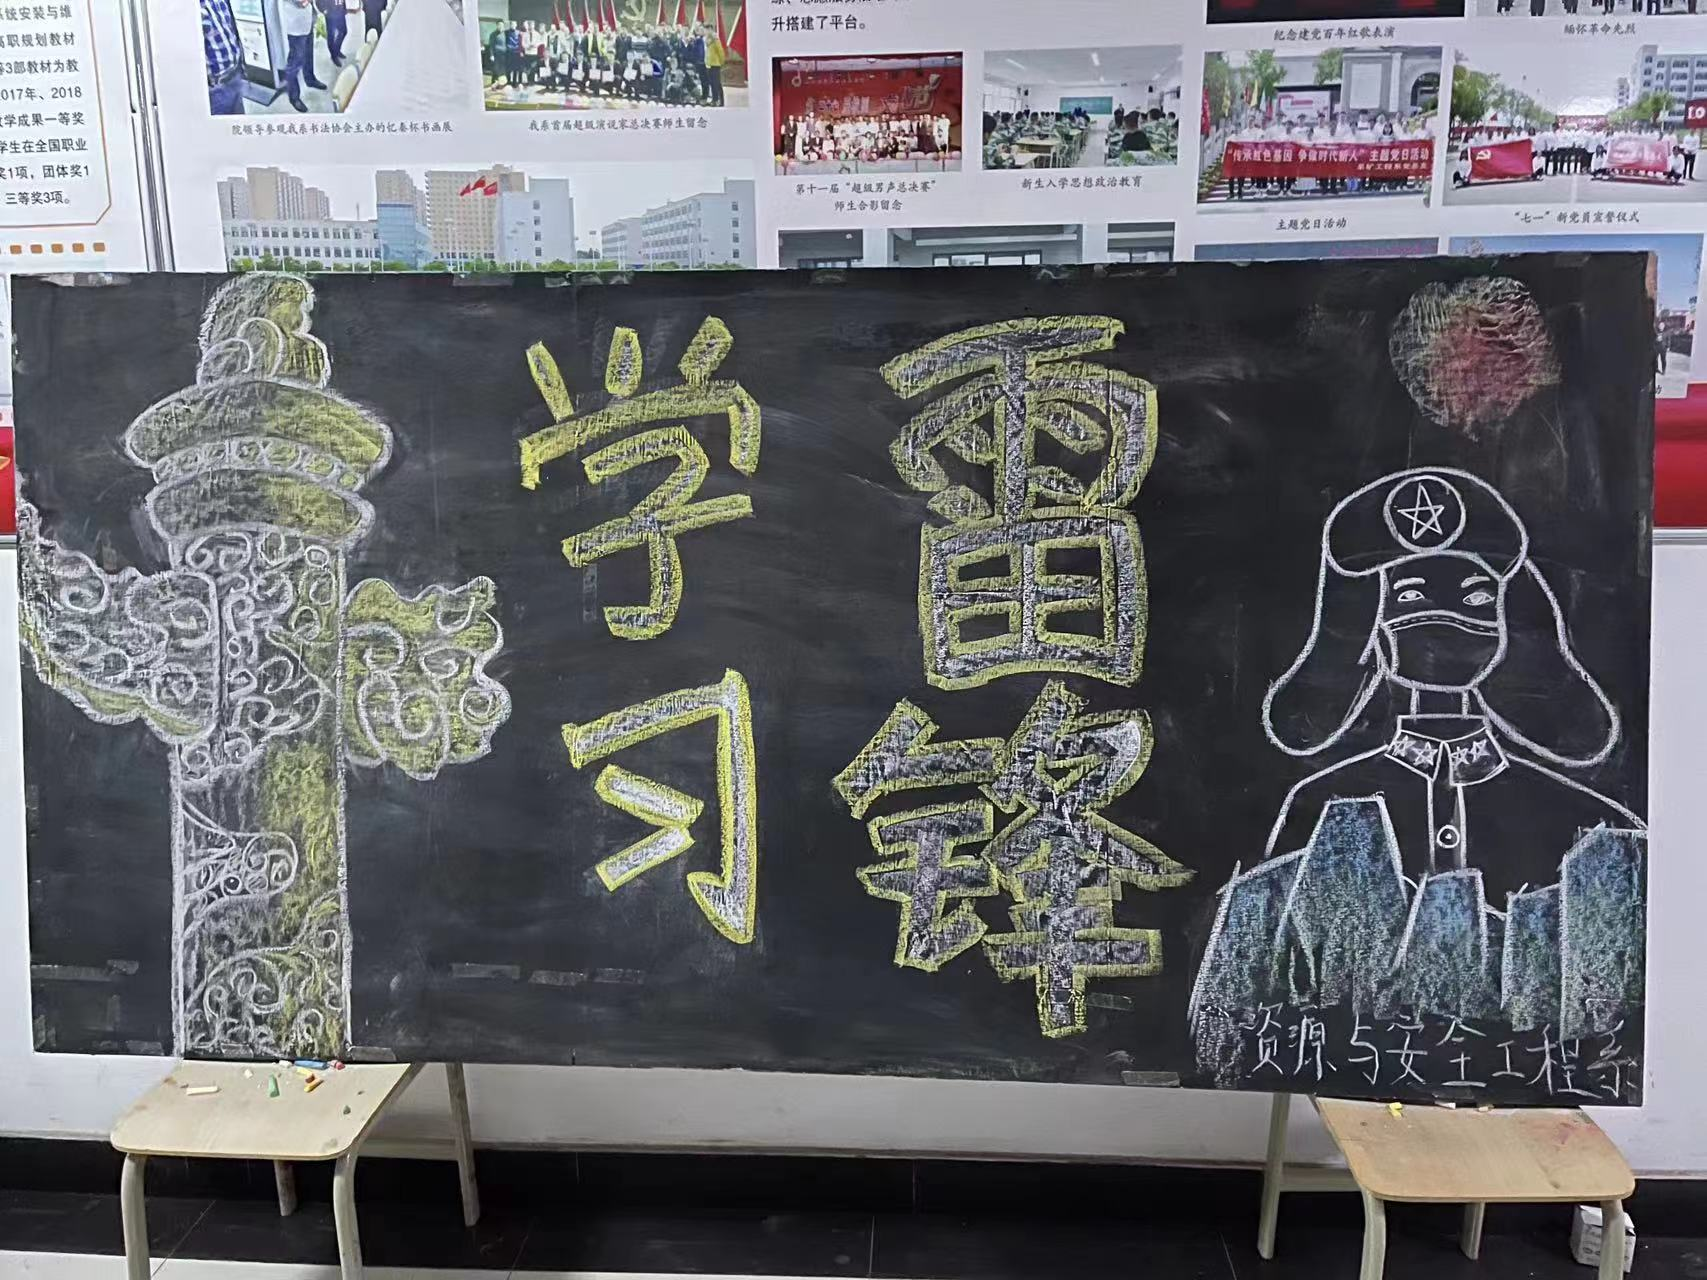 系统安装与维
高职规划教材
等3部教材为教
2017年、2018
教学成果一等奖
学生在全国职业
奖1项，团体奖1
三等奖3项。
院领导参观我系书法协会主办的忆秦怀书画展
我系首届超级演说家总决赛师生留念
升搭建了平台。
第十一届“超级男声总决赛”
师生合影留念
新生入学思想政治教育
纪念建党百年红歌表演
缅怀革命先烈
“传承红色基因 争做时代新人”主题党日活动
采矿工程系党总支
主题党日活动
“七一”新党员宣誓仪式
学习
雷锋
资源与安全工程系